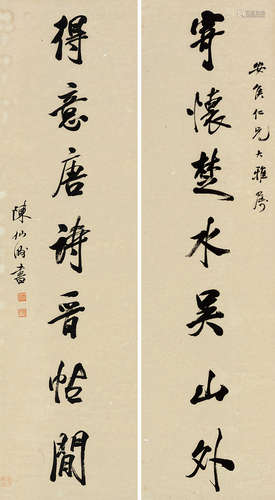 安侯仁兄大雅属
寄懷楚水吴山外
得意唐詩晋帖間
陳仙洲書